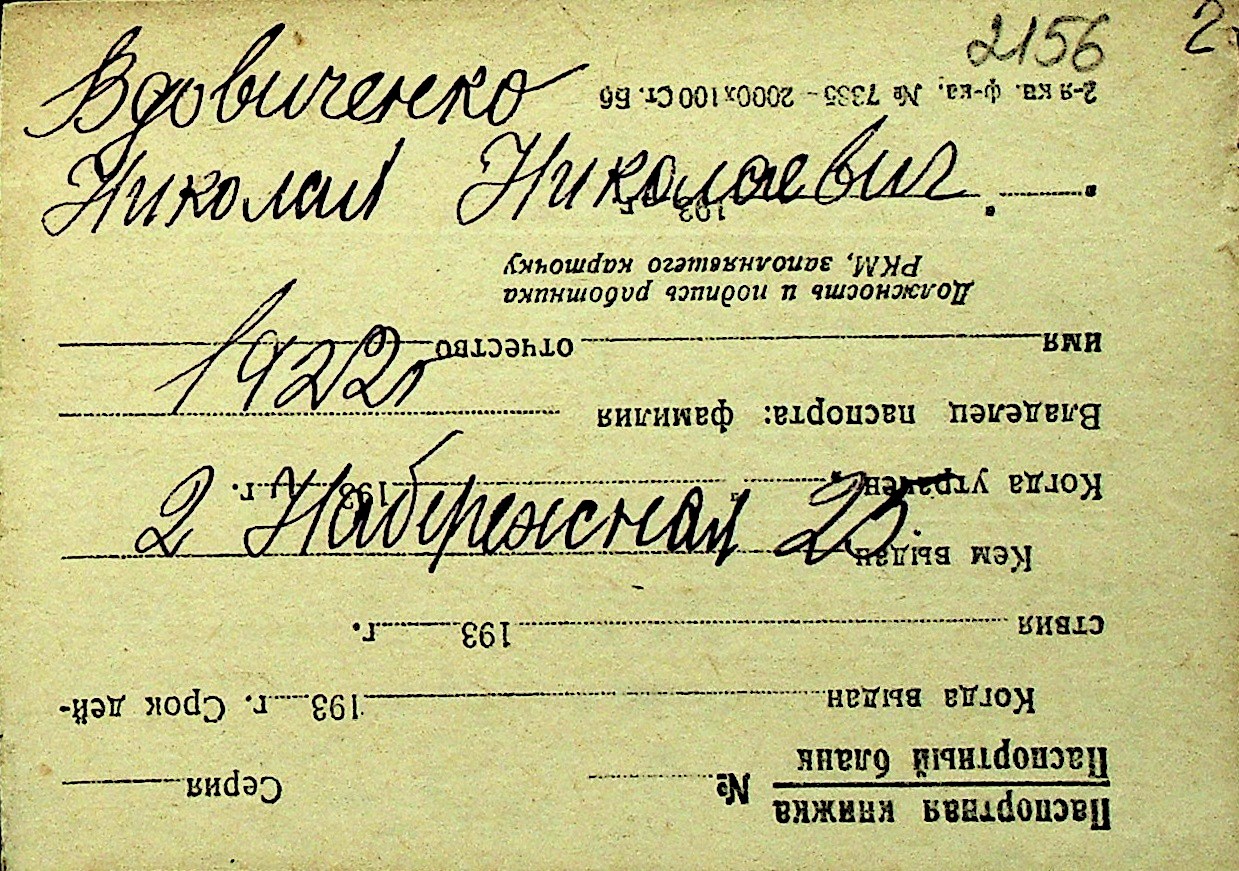 2156
Вдовиченко
Николай Николаевич
1922г
2 Набережная 25.
Паспортная книжка
Паспортный бланк
№ Серия
Когда выдан 193 г. Срок дей-
ствия 193 г.
Кем выдан
Когда утрачен „ “ 193 г.
Владелец паспорта: фамилия
имя отчество
Должность и подпись работника
РКМ, заполнявшего карточку
193 г.
2-я кв. ф-ка. № 7335–2000х100 Ст. Бб